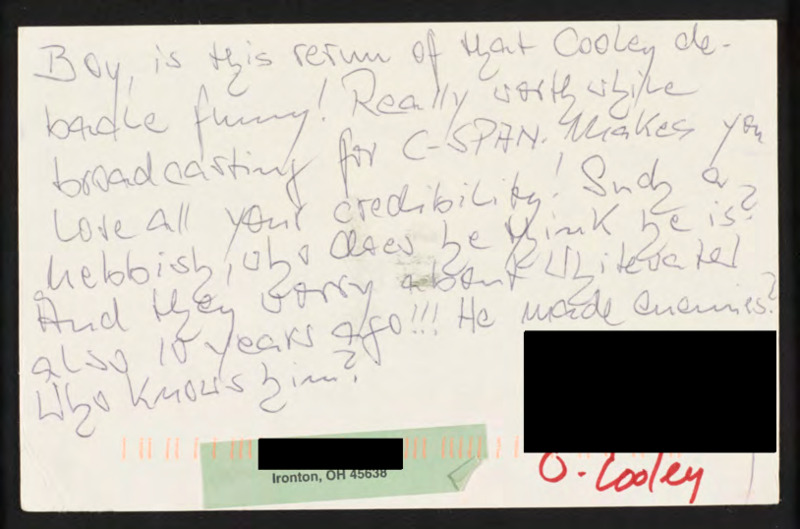 Boy, is this rerun of that Cooley de-
bacle funny! Really worthwhile
broadcasting for C-SPAN. Makes you
lose all your credibility! Such a
nebbish, who does he think he is?
And they worry about Whitewater
also 10 years ago!!! He made enemies?
Who knows him?
Ironton, OH 45638
O-Cooley